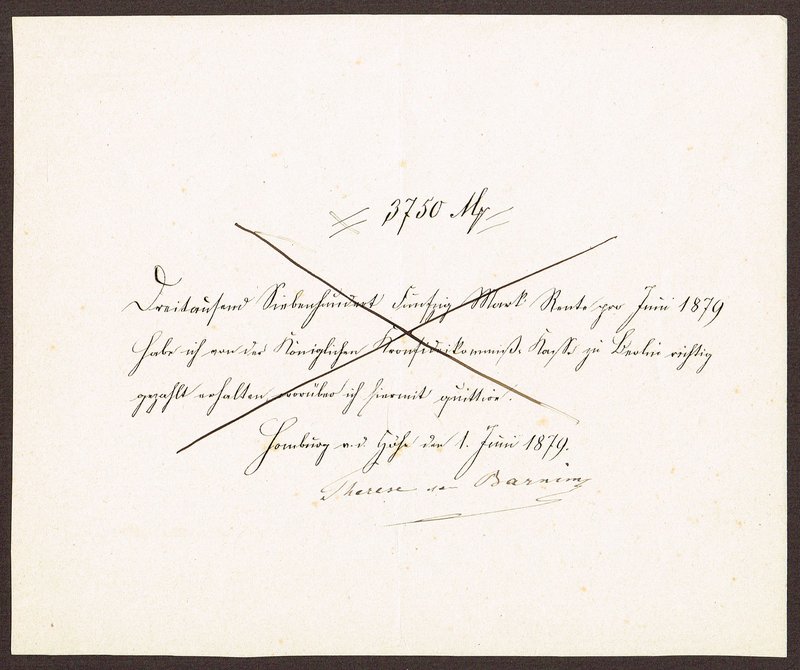 3750 Mk
Dreitausend Siebenhundert Fünfzig Mark Rente pro Juni 1879
habe ich von der Königlichen Kronfideikommiß-Kasse zu Berlin richtig
gezahlt erhalten, worüber ich hiermit quittire.
Homburg v. d. Höhe den 1. Juni 1879.
Therese von Barnim